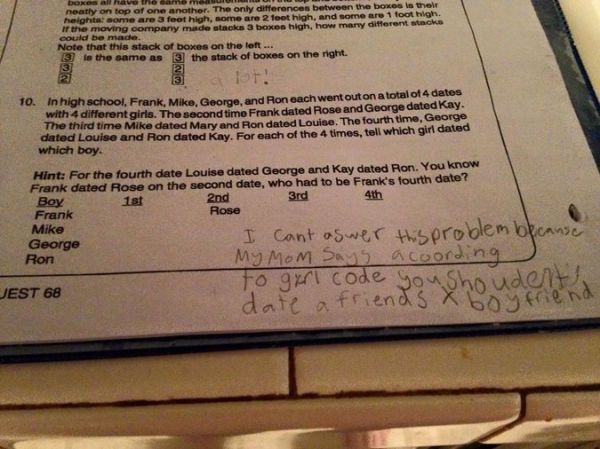 boxes all have the same measurements on the top and bottom
neatly on top of one another. The only differences between the boxes is their
heights: some are 3 feet high, some are 2 feet high, and some are 1 foot high.
If the moving company made stacks 3 boxes high, how many different stacks
could be made.
Note that this stack of boxes on the left ...
3 is the same as 3 the stack of boxes on the right.
3 2
2 3 a lot!
10. In high school, Frank, Mike, George, and Ron each went out on a total of 4 dates
with 4 different girls. The second time Frank dated Rose and George dated Kay.
The third time Mike dated Mary and Ron dated Louise. The fourth time, George
dated Louise and Ron dated Kay. For each of the 4 times, tell which girl dated
which boy.
Hint: For the fourth date Louise dated George and Kay dated Ron. You know
Frank dated Rose on the second date, who had to be Frank's fourth date?
Boy 1st 2nd 3rd 4th
Frank Rose
Mike
George
Ron
I cant aswer this problem because
My Mom Says acoording
to girl code you shoudent
date a friends X boyfriend
UEST 68